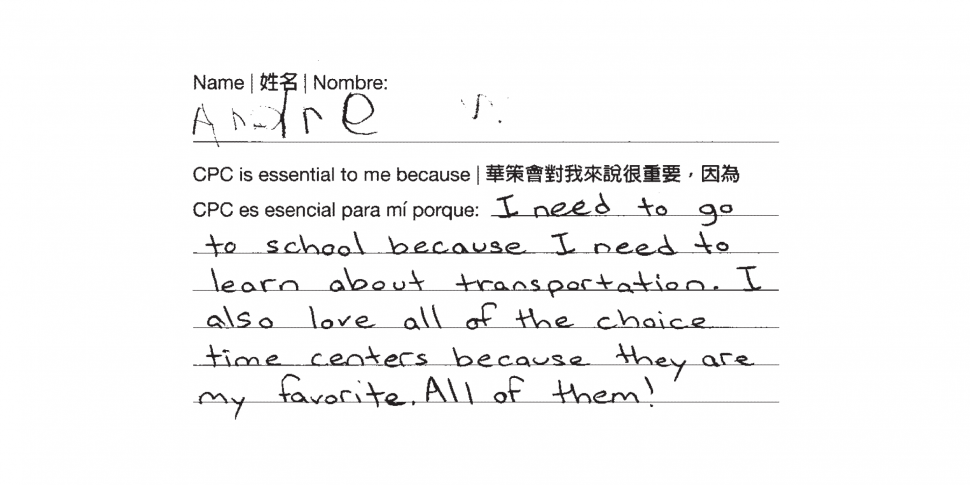 Name | 姓名 | Nombre:
Andre
CPC is essential to me because | 華策會對我來說很重要，因為
CPC es esencial para mí porque: I need to go
to school because I need to
learn about transportation. I
also love all of the choice
time centers because they are
my favorite. All of them!